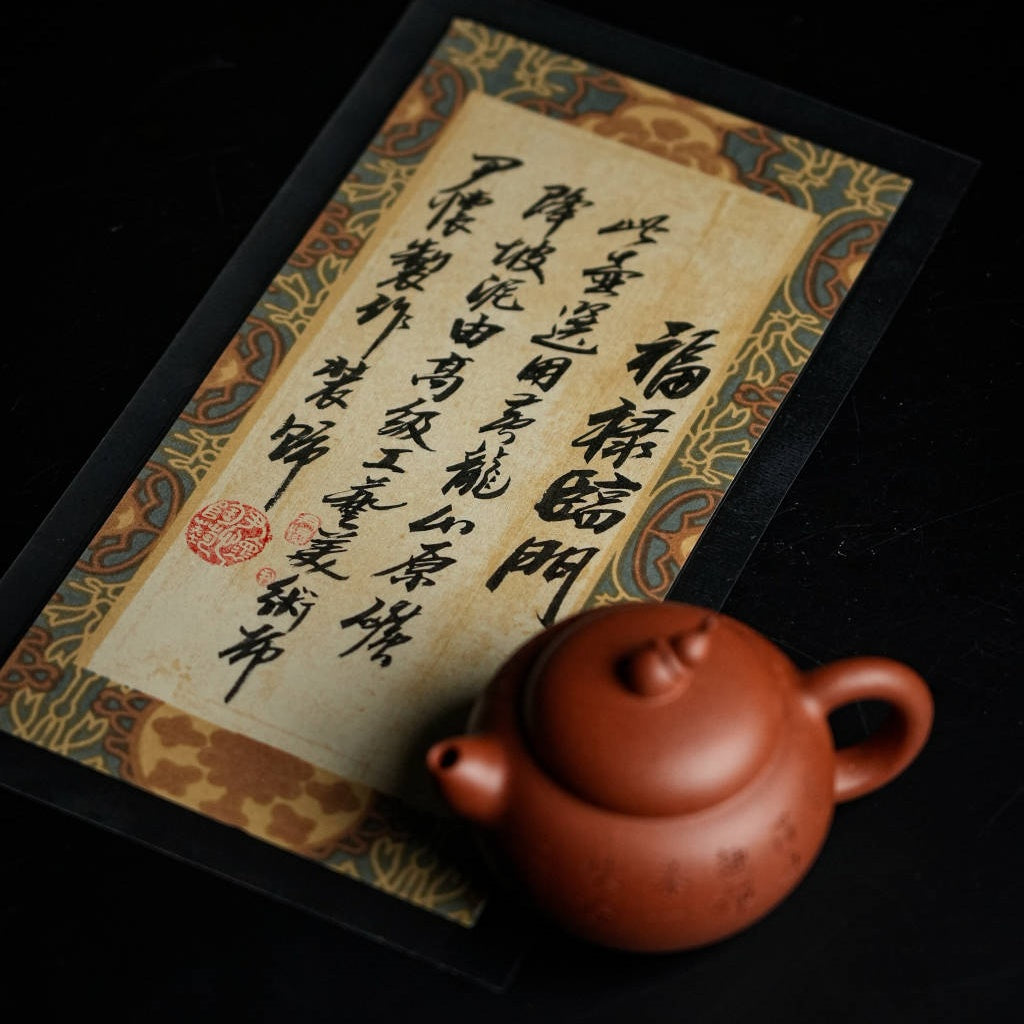 福祿臨門
此壺選用黃龍山原礦
降坡泥由高級工藝美術師
尹懷製作裝飾